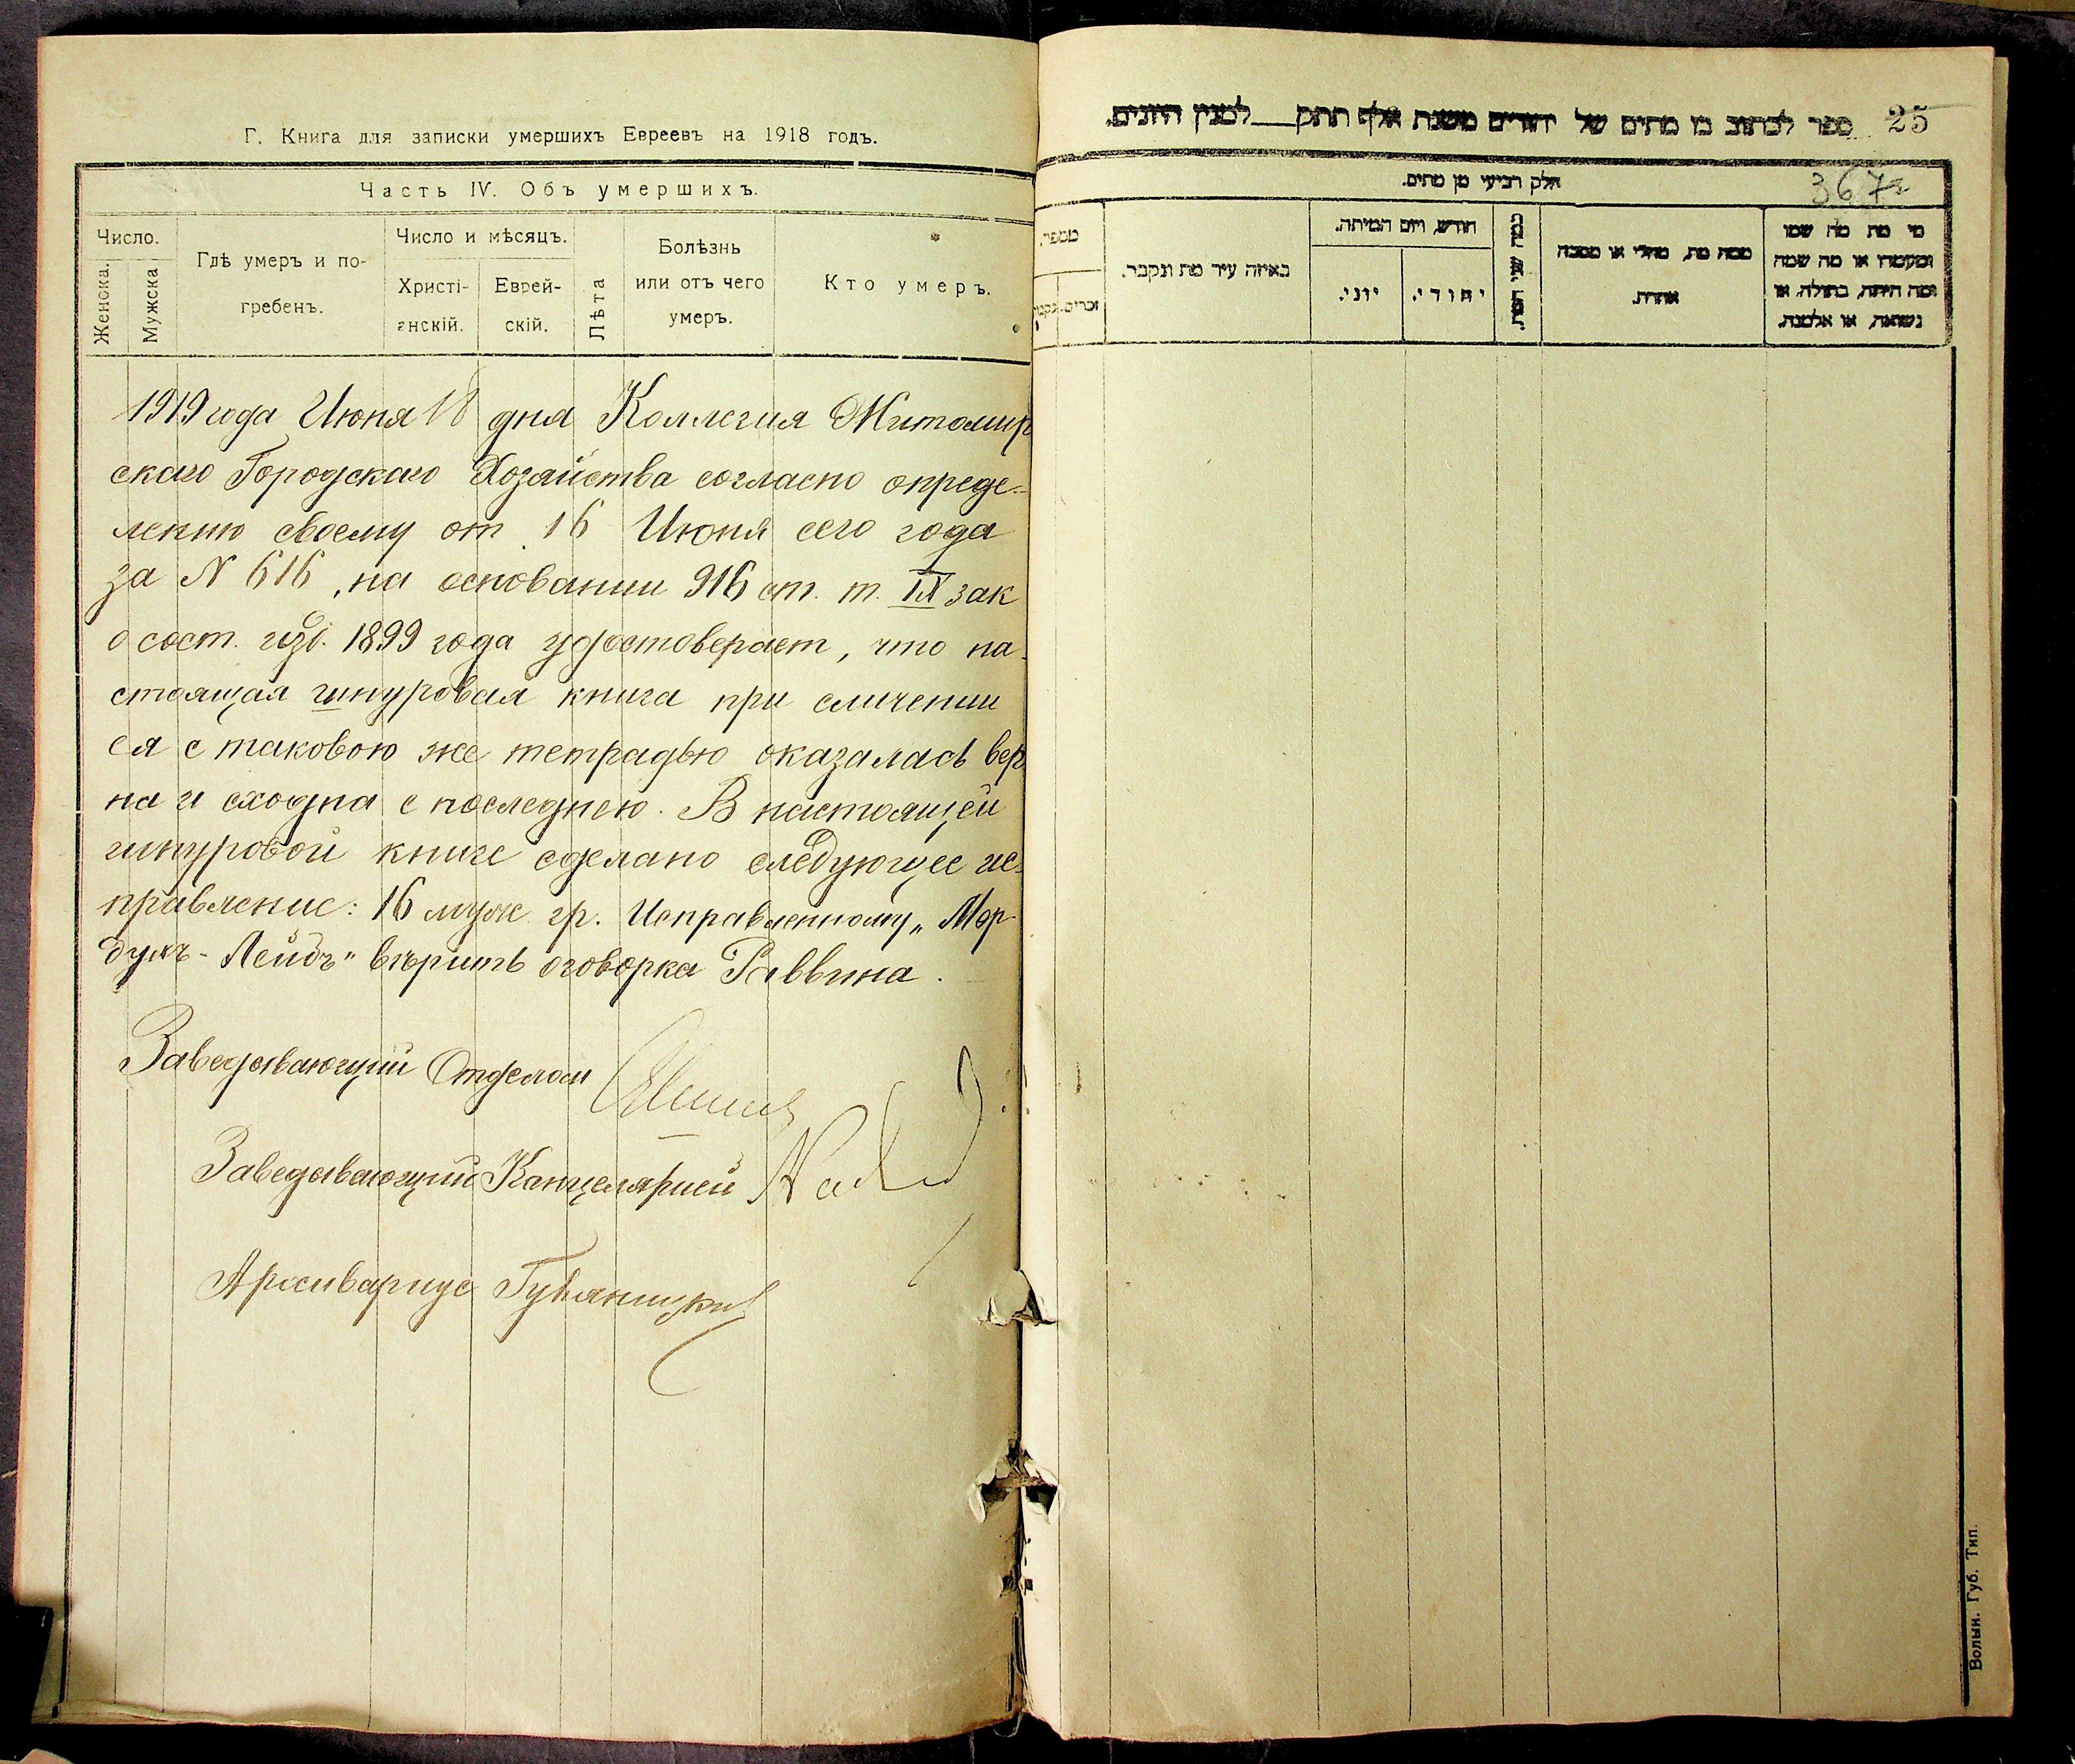 Г. Книга для записки умершихъ Евреевъ на 1918 годъ.
Часть IV. Объ умершихъ.
Число.
Женска.
Мужска
Гдѣ умеръ и по-
гребенъ.
Число и мѣсяцъ.
Христі-
анскій.
Еврей-
скій.
Лѣта
Болѣзнь
или отъ чего
умеръ.
Кто умеръ.
1919 года Июня 18 дня Коллегия Житомир
скаго Городскаго Хозяйства согласно опреде-
лению своему от 16 Июня сего года
за N 616, на основании 916 ст. т. IX зак
о сост. изд. 1899 года удостоверяет, что на-
стоящая шнуровая книга при сличении
ея с таковою же тетрадью оказалась вер
на и сходна с последнею. В настоящей
шнуровой книге сделано следующее ис-
правление: 16 муж. гр. Исправленному „Мор-
духъ-Лейбъ" вѣрить оговорка Раввина.
Заведывающий Отделом
Заведывающий Канцелярией
Архивариус
25
ספר לכתוב בו מתים של יהודים משנת אלף תתק___למנין היונים.
367
חלק רביעי מן מתים.
מספר.
זכרים.
באיזה עיר מת ונקבר.
חודש, ויום המיתה.
יוני.
יהודי.
כמה שני המת.
ממה מת, מחלי או מסבה
אחרת.
מי מת מה שמו
ומעמדו או מה שמה
ומה היתה, בתולה, או
נשואה, או אלמנה.
Волын. Губ. Тип.